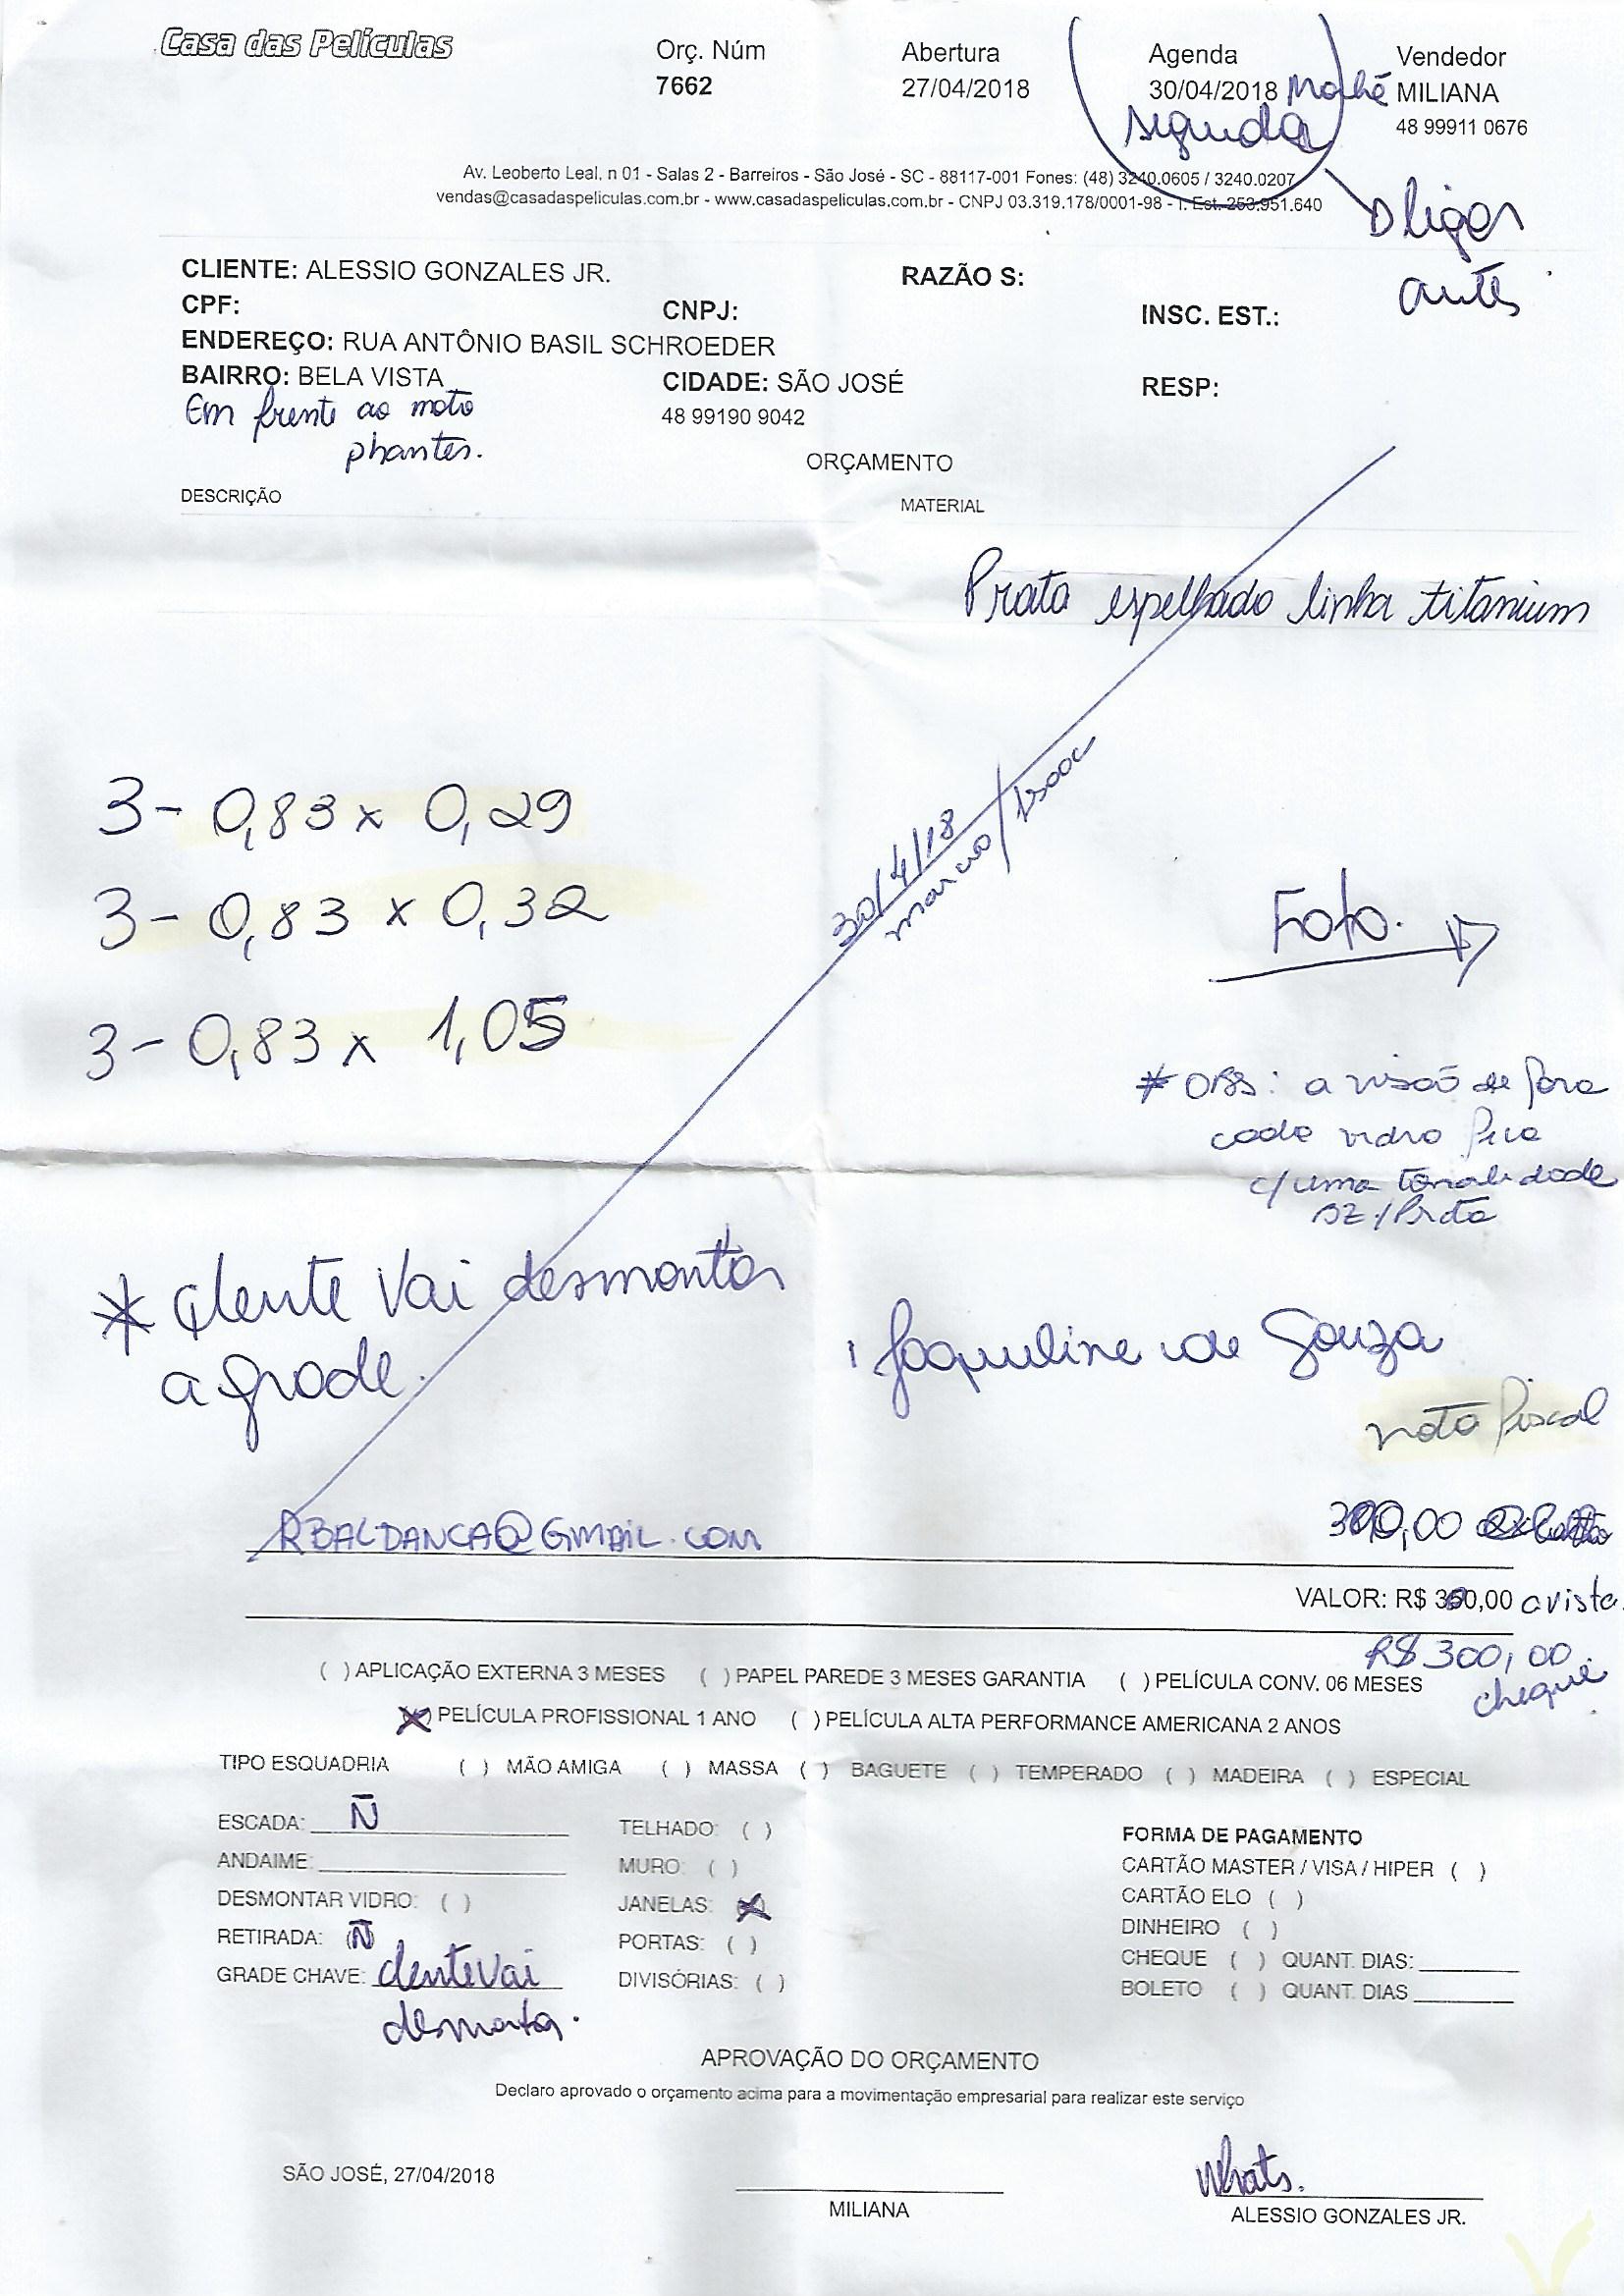 Casa das Películas
Orç. Núm
7662
Abertura
27/04/2018
Agenda
30/04/2018
segunda
Vendedor
MILIANA
48 99911 0676
Av. Leoberto Leal, n 01 - Salas 2 - Barreiros - São José - SC - 88117-001 Fones: (48) 3240.0605 / 3240.0207
vendas@casadaspeliculas.com.br - www.casadaspeliculas.com.br - CNPJ 03.319.178/0001-98 - I. Est. 253.951.640
ligar
antes
CLIENTE: ALESSIO GONZALES JR.
RAZÃO S:
CPF:
CNPJ:
INSC. EST.:
ENDEREÇO: RUA ANTÔNIO BASIL SCHROEDER
BAIRRO: BELA VISTA
CIDADE: SÃO JOSÉ
RESP:
Em frente ao moto
phantes.
48 99190 9042
ORÇAMENTO
DESCRIÇÃO
MATERIAL
Prata espelhado linha titanium
3 - 0,83 x 0,29
3 - 0,83 x 0,32
3 - 0,83 x 1,05
30/4/18
marcio/Isaac
Foto.
* OBS: a visão de fora
cada vidro fica
c/ uma tonalidade
DZ./Prata
* cliente vai desmontar
a grade.
Jaqueline de Souza
nota fiscal
RBALDANCA@GMAIL.COM
VALOR: R$ 300,00 avista
R$ 300,00
cheque
( ) APLICAÇÃO EXTERNA 3 MESES ( ) PAPEL PAREDE 3 MESES GARANTIA ( ) PELÍCULA CONV. 06 MESES
(X) PELÍCULA PROFISSIONAL 1 ANO ( ) PELÍCULA ALTA PERFORMANCE AMERICANA 2 ANOS
TIPO ESQUADRIA ( ) MÃO AMIGA ( ) MASSA ( ) BAGUETE ( ) TEMPERADO ( ) MADEIRA ( ) ESPECIAL
ESCADA: Ñ
ANDAIME:
DESMONTAR VIDRO: ( )
RETIRADA: (Ñ)
GRADE CHAVE: cliente vai
desmontar.
TELHADO: ( )
MURO: ( )
JANELAS: (X)
PORTAS: ( )
DIVISÓRIAS: ( )
FORMA DE PAGAMENTO
CARTÃO MASTER / VISA / HIPER ( )
CARTÃO ELO ( )
DINHEIRO ( )
CHEQUE ( ) QUANT. DIAS:
BOLETO ( ) QUANT. DIAS
APROVAÇÃO DO ORÇAMENTO
Declaro aprovado o orçamento acima para a movimentação empresarial para realizar este serviço
SÃO JOSÉ, 27/04/2018
MILIANA
Whats.
ALESSIO GONZALES JR.